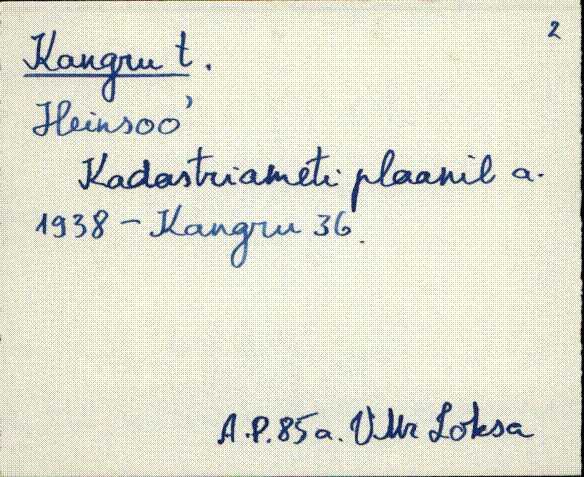 2
Kangru t.
Heinsoo'
Kadastriameti plaanil a.
1938 – Kangru 36.
A.P. 85a. VMr Loksa